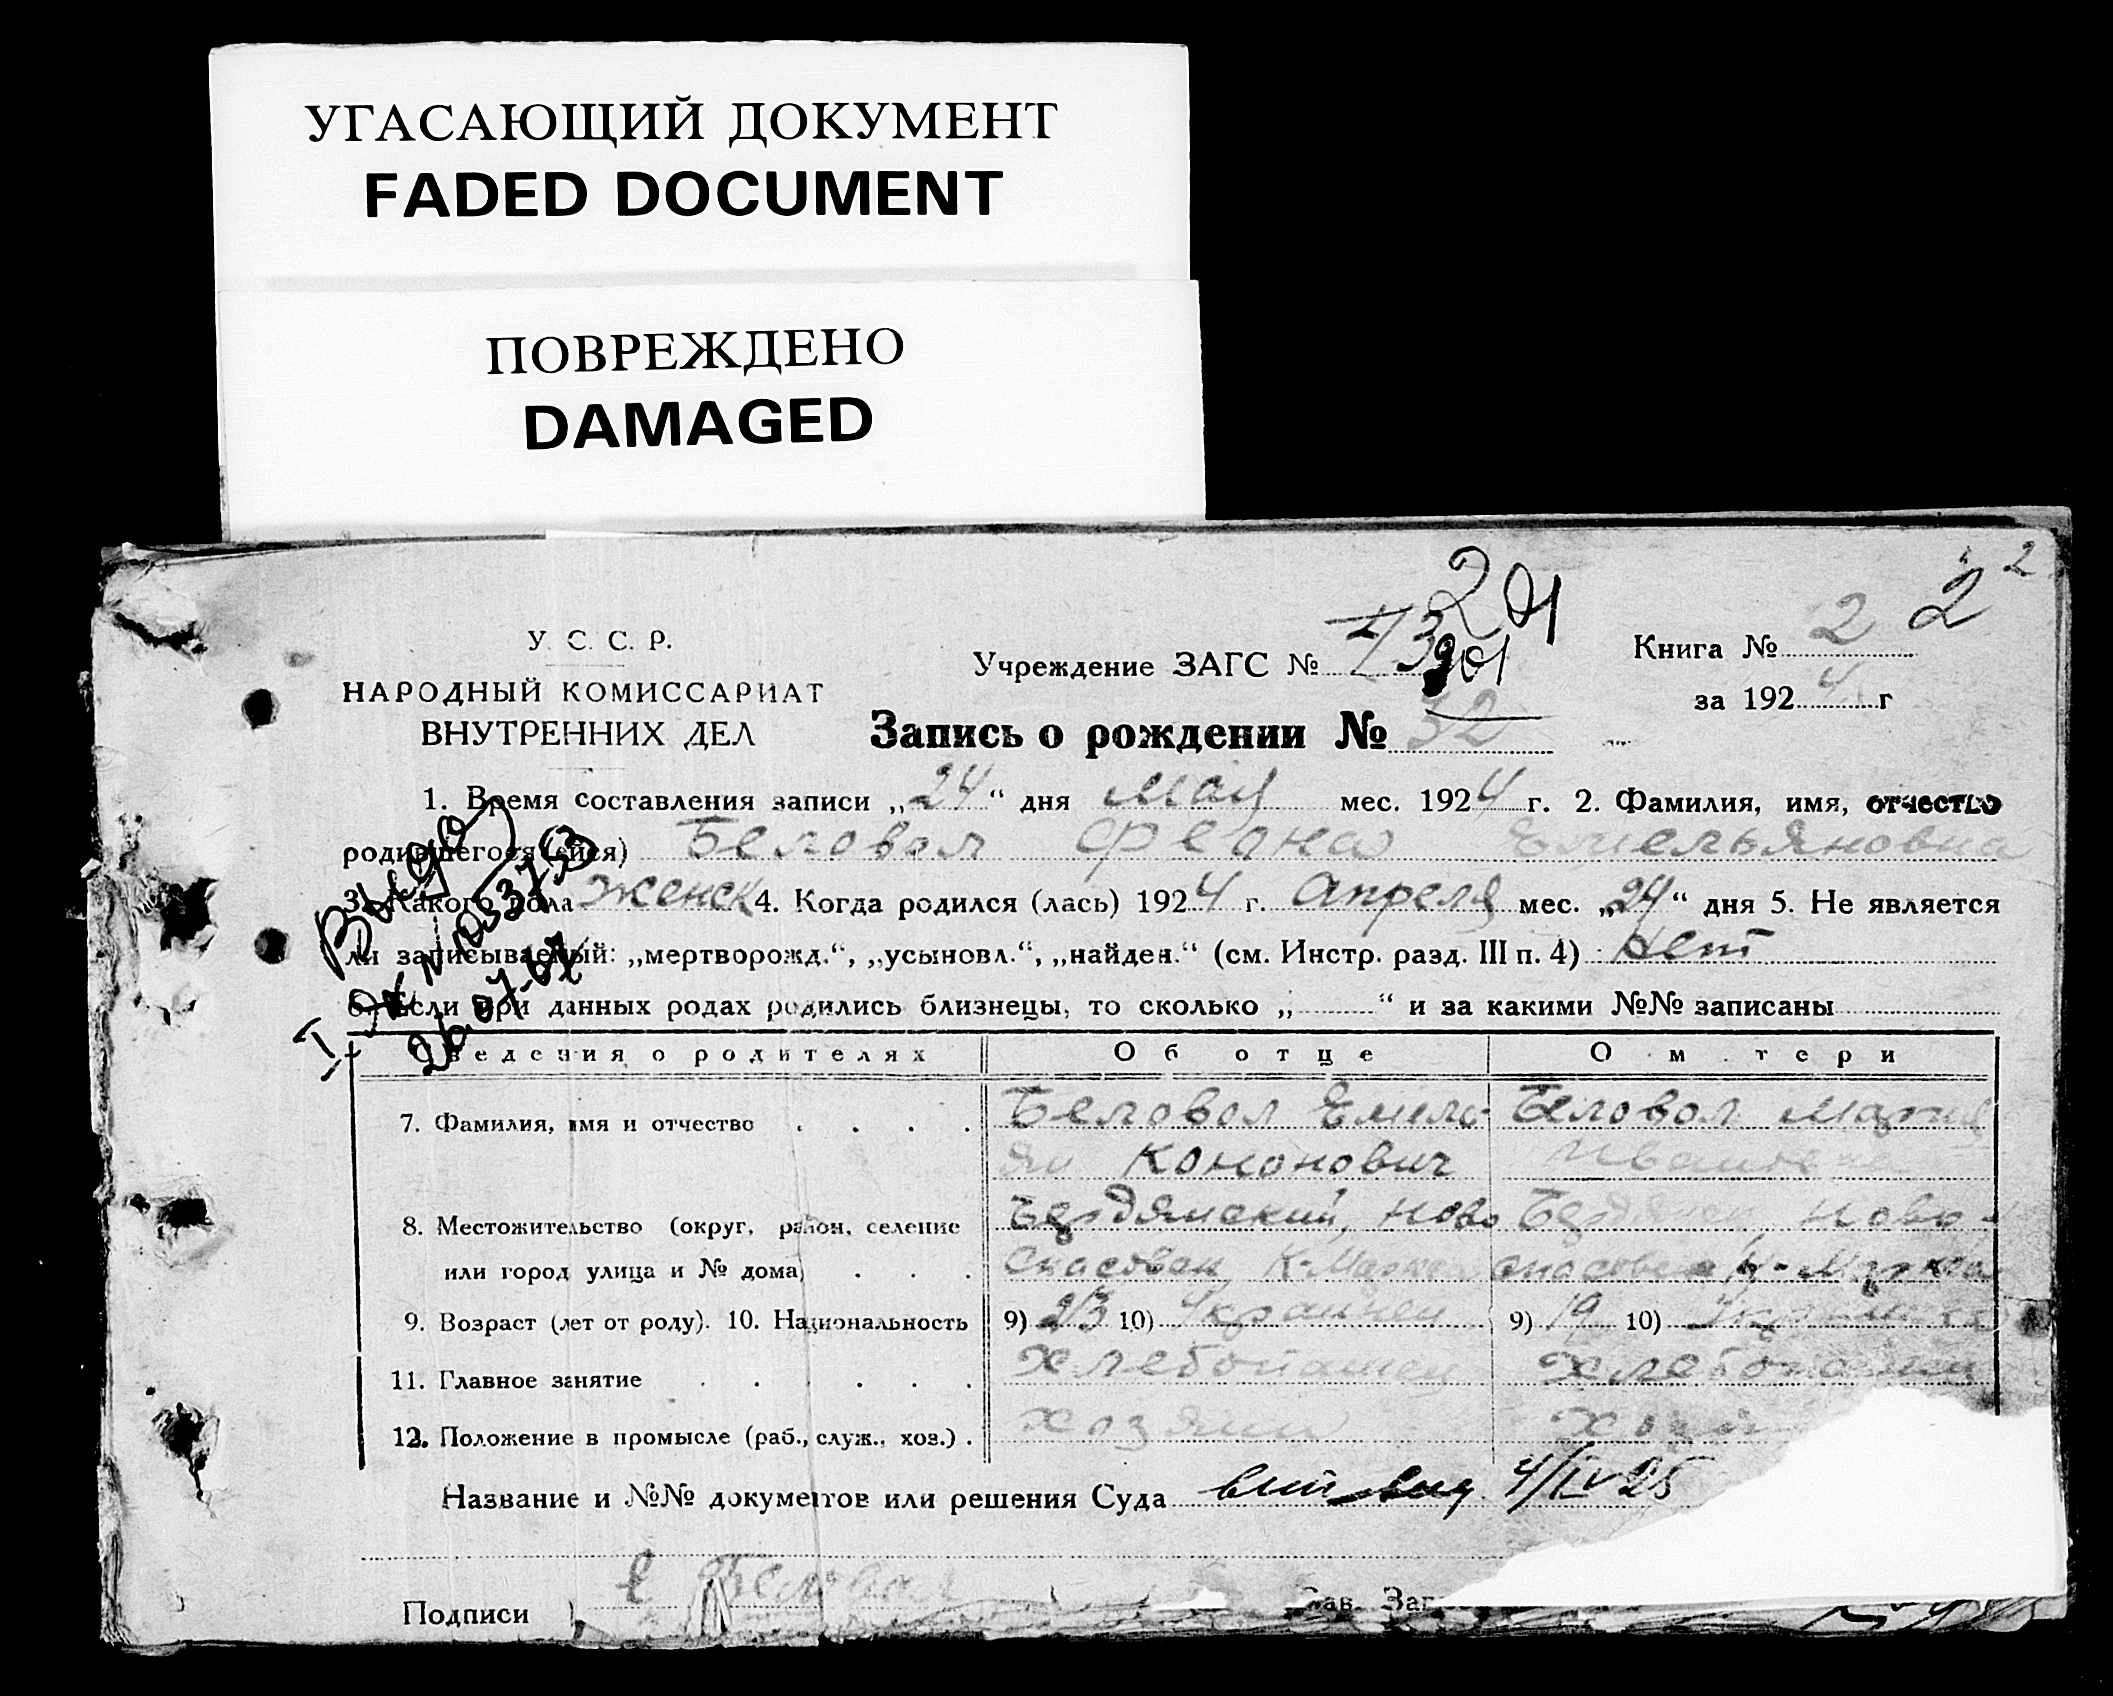 УГАСАЮЩИЙ ДОКУМЕНТ
FADED DOCUMENT
ПОВРЕЖДЕНО
DAMAGED
2
201 2
У. С. С. Р.
НАРОДНЫЙ КОМИССАРИАТ
ВНУТРЕННИХ ДЕЛ
Учреждение ЗАГС № 201
Книга № 2
за 1924 г
Запись о рождении № 32
1. Время составления записи „24“ дня мая мес. 1924 г. 2. Фамилия, имя, отчество
родившегося (ейся) Беловол Феона Емельяновна
3. Какого пола женск 4. Когда родился (лась) 1924 г. Апреля мес. „24“ дня 5. Не является
ли записываемый: „мертворожд.“, „усыновл.“, „найден.“ (см. Инстр. разд. III п. 4) Нет
6. Если при данных родах родились близнецы, то сколько „ “ и за какими №№ записаны
Сведения о родителях Об отце О матери
7. Фамилия, имя и отчество Беловол Емель- Беловол Мария
ян Кононович Ивановна
8. Местожительство (округ, район, селение Бердянский, Ново Ново
или город, улица и № дома) Спасовск К-Маркса спасовск К-Маркса
9. Возраст (лет от роду). 10. Национальность 9) 23 10) Украинец 9) 19 10)
11. Главное занятие Хлебопашец Хлебопашец
12. Положение в промысле (раб., служ., хоз.) Хозяин
Название и №№ документов или решения Суда 4/IV 25
Подписи Е Беловол Зав. Заг